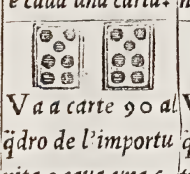 e caua una carta.
Va a carte 90 al
q̃dro de l'importu